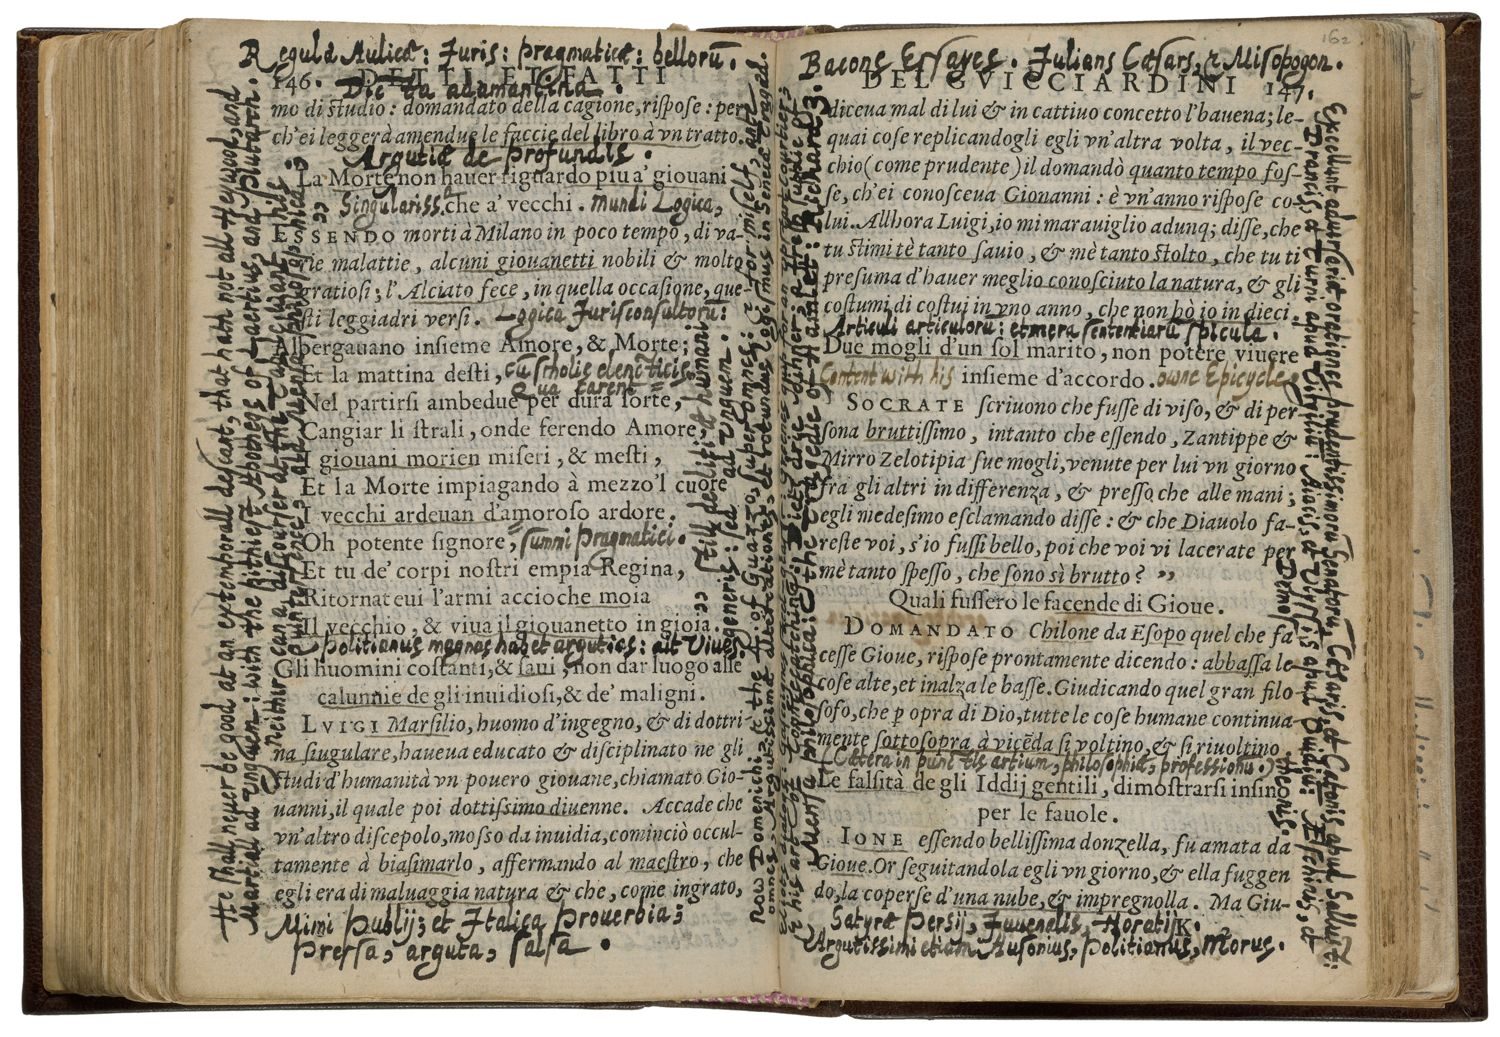 Regulæ Aulicæ: Juris: pragmaticæ: bellorū.
146. DETTI, ET FATTI
Dicta adamantina.
mo di ſtudio: domandato della cagione, riſpoſe: per
ch'ei leggerà amendue le faccie del libro à vn tratto.
Argutiæ de profundis.
La Morte non hauer riguardo piu a' giouani
Singulariss. che a' vecchi. mundi Logica,
ESSENDO morti à Milano in poco tempo, di va-
rie malattie, alcuni giouanetti nobili & molto
gratioſi; l'Alciato fece, in quella occaſione, que-
ſti leggiadri verſi. Logica Juriſconſultorū:
Albergauano inſieme Amore, & Morte;
Et la mattina deſti, cū ſcholis elencticis.
Qua carent
Nel partirſi ambedue per dura ſorte,
Cangiar li ſtrali, onde ferendo Amore,
I giouani morien miſeri, & meſti,
Et la Morte impiagando à mezzo'l cuore
I vecchi ardeuan d'amoroſo ardore.
Oh potente ſignore, ſummi Pragmatici.
Et tu de' corpi noſtri empia Regina,
Ritornateui l'armi accioche moia
Il vecchio, & viua il giouanetto in gioia.
Politianus magnas habet argutias: ait Viues.
Gli huomini coſtanti, & ſaui, non dar luogo alle
calunnie de gli inuidioſi, & de' maligni.
LVIGI Marſilio, huomo d'ingegno, & di dottri-
na ſiugulare, haueua educato & diſciplinato ne gli
ſtudi d'humanità vn pouero giouane, chiamato Gio-
uanni, il quale poi dottiſſimo diuenne. Accade che
vn'altro diſcepolo, moſſo da inuidia, cominciò occul-
tamente à biaſimarlo, affermando al maeſtro, che
egli era di maluaggia natura & che, come ingrato,
Mimi Publij; et Italica Prouerbia;
preſſa, arguta, ſalſa.
He ſhall neuer be good at an extemporall deſcant, that hath not all Heywood, and
Martiall ad unguem: with the pithieſt Apothegs of Laertius, and Plutarch.
Now Domenichi, & the A. of Guazzo, ſuper omnes:
Bacons Eſſayes. Julians Cæſars, & Miſopogon.
162
DEL GVICCIARDINI 147.
diceua mal di lui & in cattiuo concetto l'haueua; le-
quai coſe replicandogli egli vn'altra volta, il vec-
chio (come prudente) il domandò quanto tempo foſ-
ſe, ch'ei conoſceua Gionanni: è vn'anno riſpoſe co-
lui. Allhora Luigi, io mi marauiglio adunq; diſſe, che
tu ſtimi tè tanto ſauio, & mè tanto ſtolto, che tu ti
preſuma d'hauer meglio conoſciuto la natura, & gli
coſtumi di coſtui in vno anno, che non hò io in dieci.
Articuli articulorū: et mera ſententiarū ſpicula.
Due mogli d'un ſol marito, non potere viuere
Content with his inſieme d'accordo. owne Epicycle.
SOCRATE ſcriuono che fuſſe di viſo, & di per
ſona bruttiſſimo, intanto che eſſendo, Zantippe &
Mirro Zelotipia ſue mogli, venute per lui vn giorno
fra gli altri in differenza, & preſſo che alle mani;
egli medeſimo eſclamando diſſe: & che Diauolo fa-
reſte voi, s'io fuſſi bello, poi che voi vi lacerate per
mè tanto ſpeſſo, che ſono sì brutto?
Quali fuſſero le facende di Gioue.
DOMANDATO Chilone da Eſopo quel che fa-
ceſſe Gioue, riſpoſe prontamente dicendo: abbaſſa le
coſe alte, et inalza le baſſe. Giudicando quel gran filo-
ſofo, che p opra di Dio, tutte le coſe humane continua-
mente ſottoſopra à vicēda ſi voltino, & ſi riuoltino
(Cætera in punctis artium, philoſophiæ, profeſſionū.)
Le falſità de gli Iddij gentili, dimoſtrarſi inſino
per le fauole.
IONE eſſendo belliſſima donzella, fu amata da
Gioue. Or ſeguitandola egli vn giorno, & ella fuggen
do, la coperſe d'una nube, & impregnolla. Ma Giu-
K
Satyræ Perſij, Juuenalis, Horatij.
Argutiſſimi etiam Auſonius, Politianus, Morus.
Excellunt aduerſariæ orationes prudentiſſimorū Senatorū, Cæſaris, et Catonis, apud Salluſt:
Drancis, et Turni apud Virgiliū: Aiacis, et Vliſſis apud Ouidiū: Æſchinis, et
Demoſthenis.